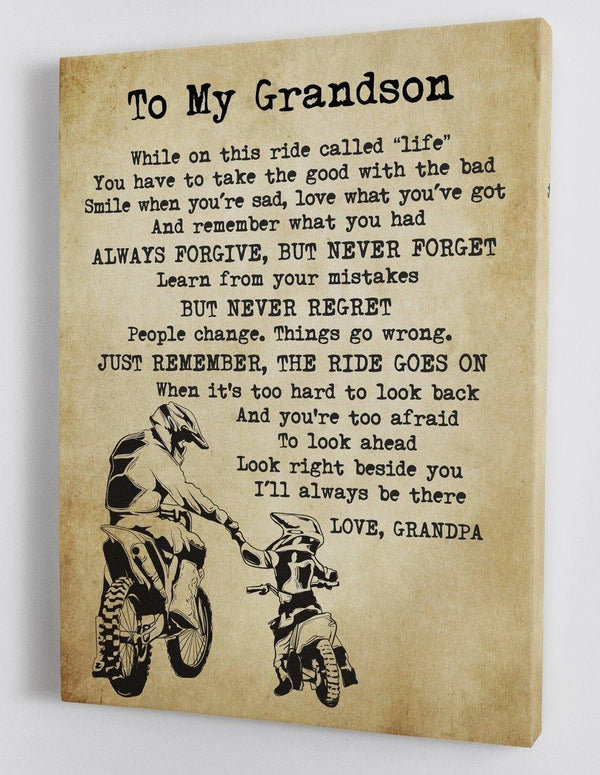 To My Grandson
While on this ride called “life”
You have to take the good with the bad
Smile when you're sad, love what you've got
And remember what you had
ALWAYS FORGIVE, BUT NEVER FORGET
Learn from your mistakes
BUT NEVER REGRET
People change. Things go wrong.
JUST REMEMBER, THE RIDE GOES ON
When it's too hard to look back
And you're too afraid
To look ahead
Look right beside you
I'll always be there
LOVE, GRANDPA